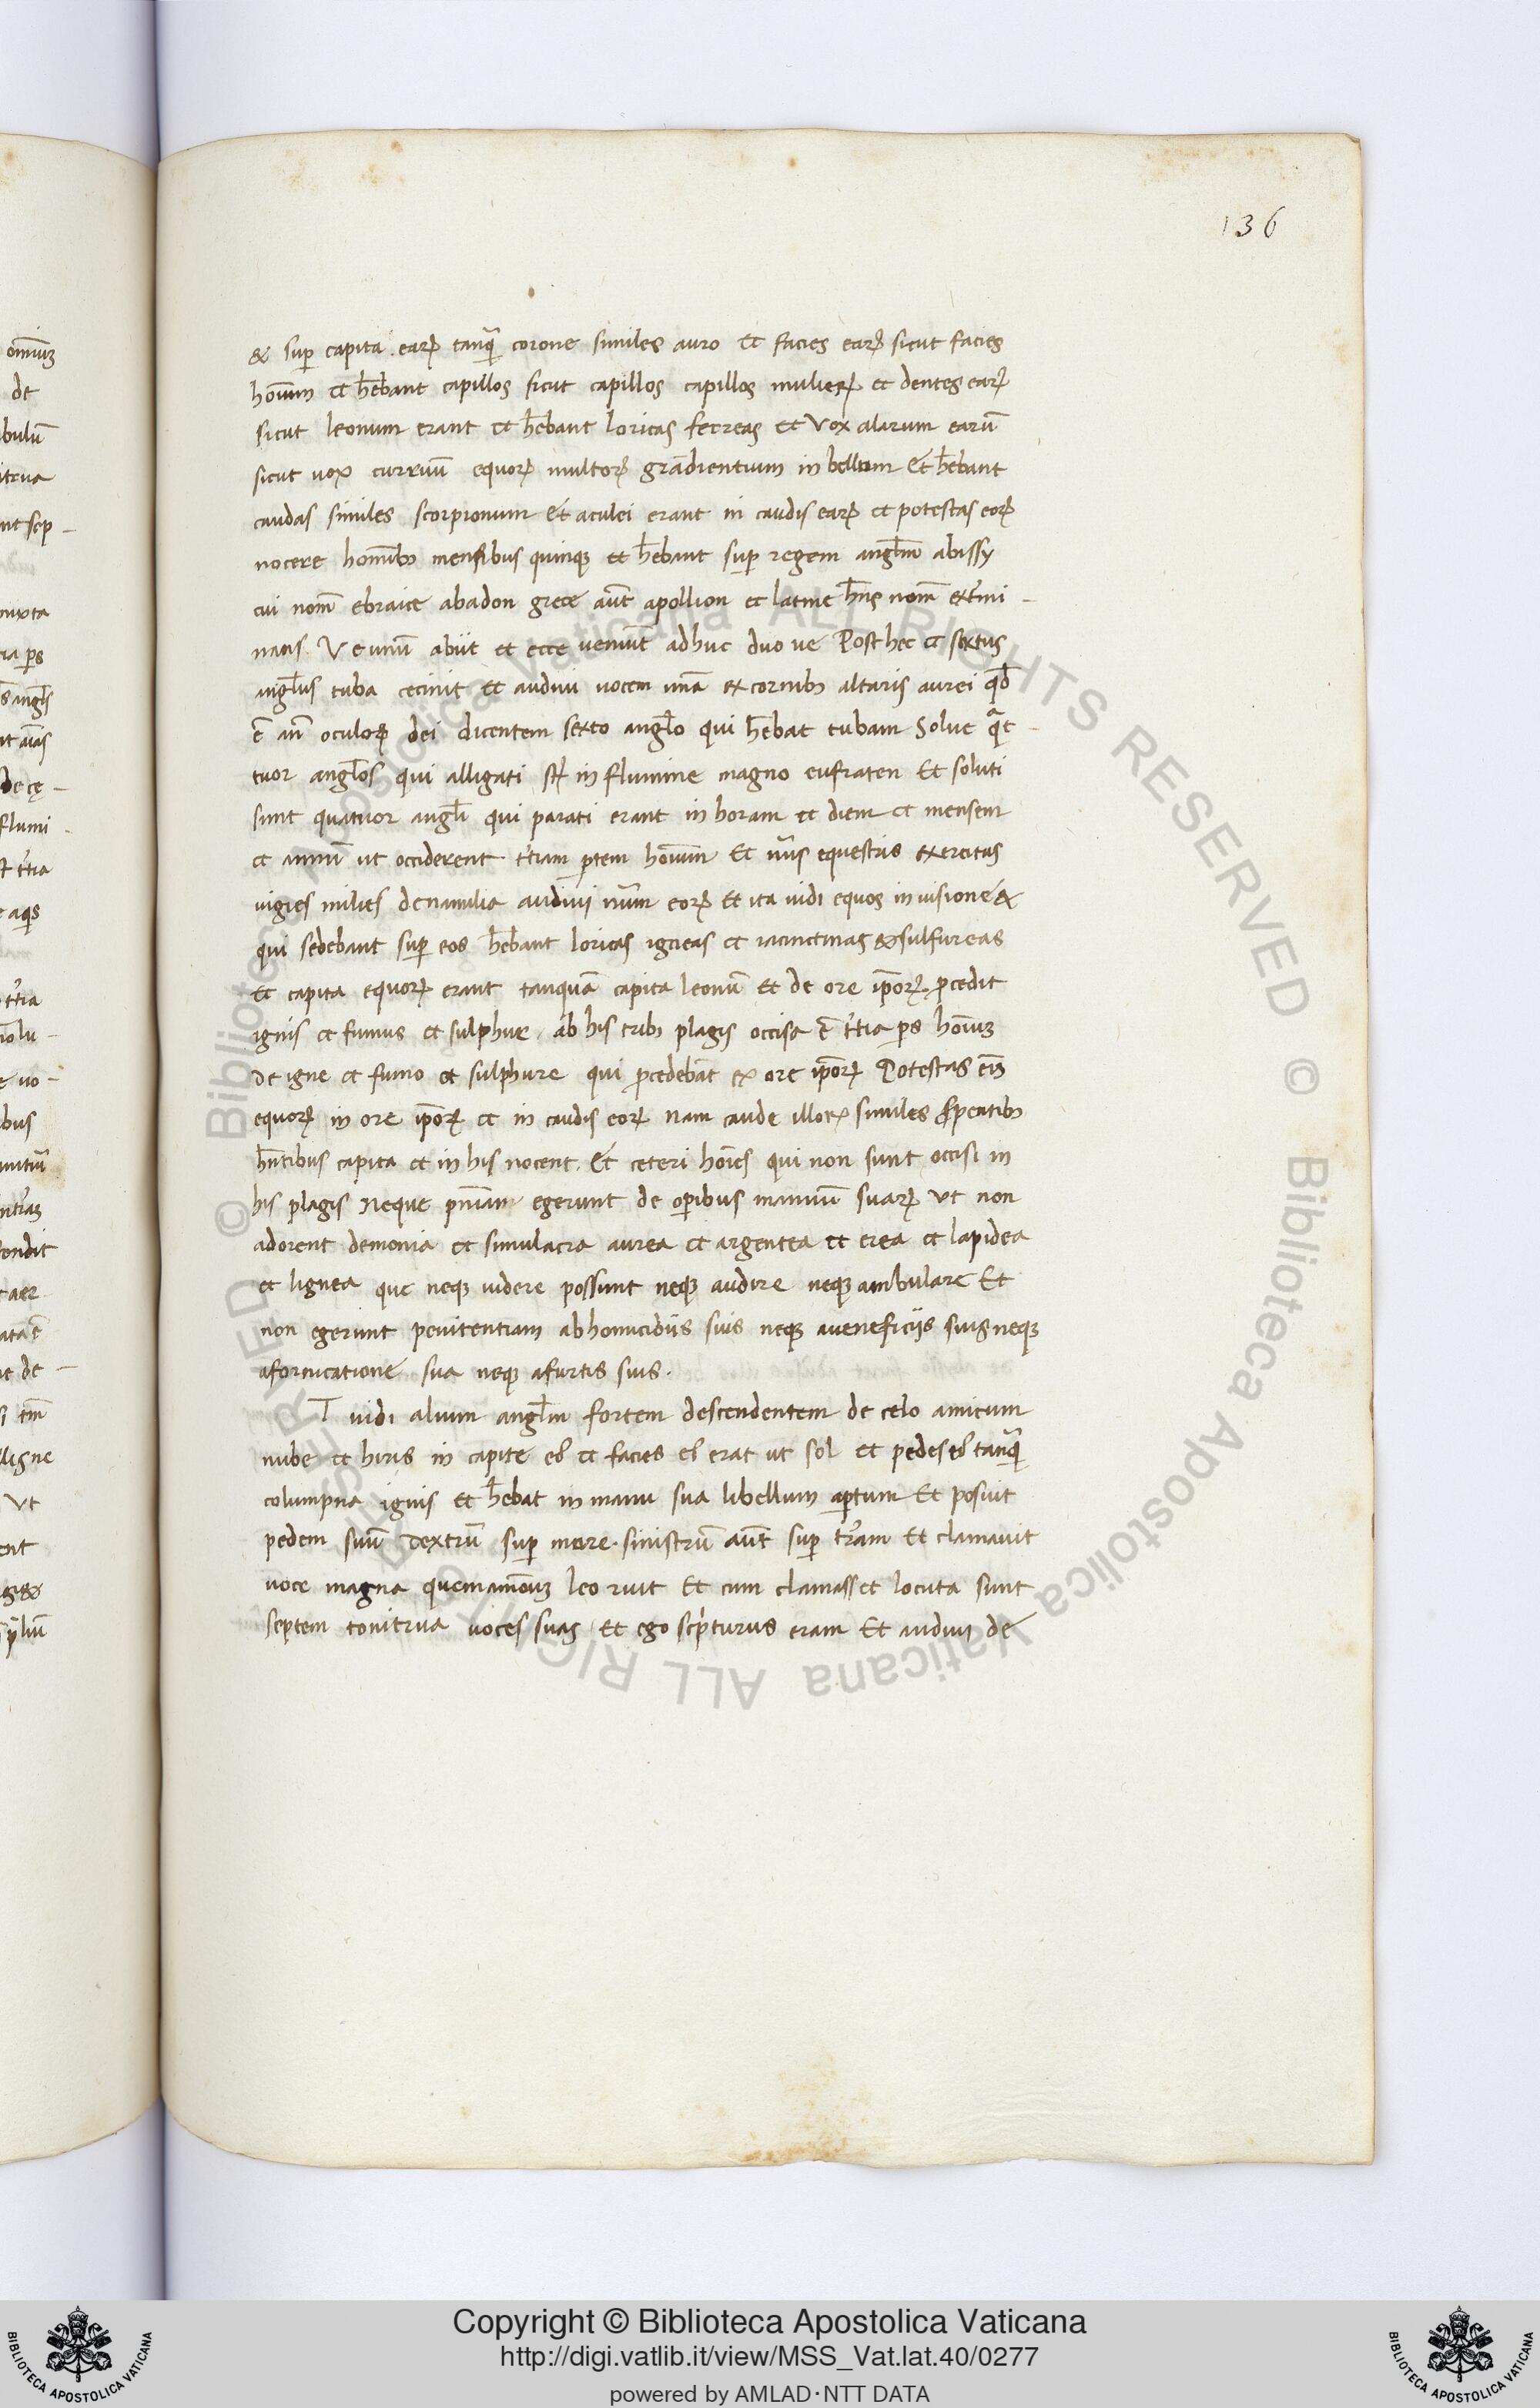 136
& sup̱ capita earꝝ tanq̃ corone similes auro et facies earꝝ sicut facies
hoĩum et h̃ebant capillos sicut capillos capillos mulierꝝ et dentes earꝝ
sicut leonum erant et h̃ebant loricas ferreas et vox alarum earũ
sicut uox curruũ equorꝝ multorꝝ grãdientium in bellum Et h̃ebant
caudas similes scorpionum Et aculei erant in caudis earꝝ et potestas eorꝝ
nocere hom̃ibꝫ mensibus quinqꝫ et h̃ebant sup̱ regem angl̃m abissy
cui nom̃ ebraice abadon grece aũt apollion et latine h̃ns nom̃ ext̃mi-
nans. Ve unũ abiit et ecce ueniũt adhuc duo ue Post hec et sextus
angl̃us tuba cecinit et audiui uocem unã ex cornibꝫ altaris aurei qd̃
ẽ añ oculorꝝ dei dicentem sexto angl̃o qui h̃ebat tubam Solue q̃t-
tuor angl̃os qui alligati sꝉ in flumine magno eufraten Et soluti
sunt quatuor angl̃i qui parati erant in horam et diem et mensem
et annũ ut occiderent t̃tiam ꝑtem hoĩum Et nũs equestris exercitus
uigies milies dena milia audiui nũm eorꝝ Et ita uidi equos in uisione &
qui sedebant sup̱ eos h̃ebant loricas igneas et iacinctinas & sulfureas
Et capita equorꝝ erant tanquã capita leonũ Et de ore ip̃orꝝ ꝓcedit
ignis et fumus et sulphur. ab his tribꝫ plagis occisa ẽ t̃tia ꝑs hoĩuꝫ
de igne et fumo et sulphure qui ꝓcedebãt ex ore ip̃orꝝ Potestas eĩꝫ
equorꝝ in ore ip̃orꝝ et in caudis eorꝝ nam caude illorꝝ similes serpentibꝫ
h̃ntibus capita et in his nocent. Et ceteri hoĩes qui non sunt occisi in
his plagis Neque pñiam egerunt de oꝑibus manuũ suarꝝ ut non
adorent demonia et simulacra aurea et argentea et erea et lapidea
et lignea que neqꝫ uidere possunt neqꝫ audire neqꝫ ambulare Et
non egerunt penitentiam ab homicidiis suis neqꝫ a ueneficiis suis neqꝫ
a fornicatione sua neqꝫ a furtis suis.
T uidi alium angl̃m fortem descendentem de celo amictum
nube et hiris in capite eꝰ et facies eꝰ erat ut sol et pedes eꝰ tanq̃
columpna ignis et h̃ebat in manu sua libellum aꝑtum Et posuit
pedem suũ dextrũ sup̱ mare. sinistrũ aũt sup̱ tr̃am Et clamauit
uoce magna quemam̃oduꝫ leo ruit Et cum clamasset locuta sunt
septem tonitrua uoces suas et ego sc̃pturus eram Et audiui de
Copyright © Biblioteca Apostolica Vaticana
http://digi.vatlib.it/view/MSS_Vat.lat.40/0277
powered by AMLAD·NTT DATA